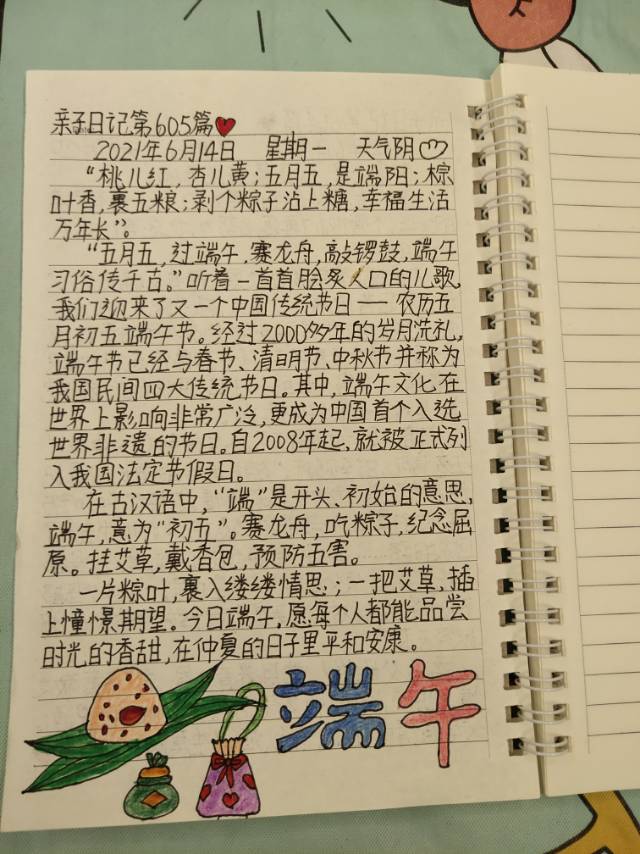 亲子日记第605篇
2021年6月14日 星期一 天气阴
“桃儿红,杏儿黄;五月五,是端阳;棕
叶香,裹五粮;剥个粽子沾上糖,幸福生活
万年长”。
“五月五,过端午,赛龙舟,敲锣鼓,端午
习俗传千古。”听着一首首脍炙人口的儿歌,
我们迎来了又一个中国传统节日——农历五
月初五端午节。经过2000多年的岁月洗礼,
端午节已经与春节、清明节、中秋节并称为
我国民间四大传统节日。其中,端午文化在
世界上影响非常广泛,更成为中国首个入选
世界非遗的节日。自2008年起,就被正式列
入我国法定节假日。
在古汉语中,“端”是开头、初始的意思,
端午,意为“初五”。赛龙舟,吃粽子,纪念屈
原。挂艾草,戴香包,预防五害。
一片粽叶,裹入缕缕情思;一把艾草,插
上憧憬期望。今日端午,愿每个人都能品尝
时光的香甜,在仲夏的日子里平和安康。
端午